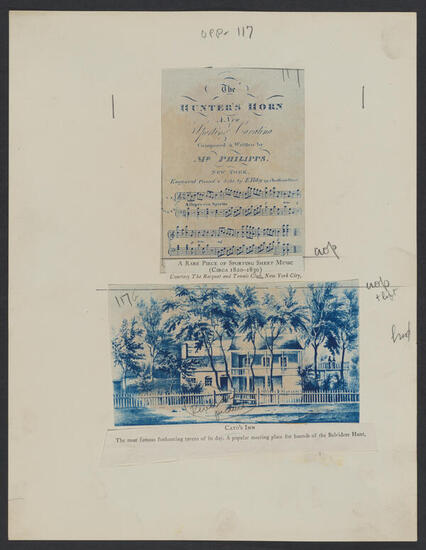 opp. 117
117
The
HUNTER'S HORN
A New
Sporting Cavatina
Composed & Written by
Mr. PHILIPPS.
NEW YORK,
Engraved Printed & Sold by E. Riley
Allegro con Spirito
A RARE PIECE OF SPORTING SHEET MUSIC
(CIRCA 1820-1830)
Courtesy The Racquet and Tennis Club, New York City.
117
CATO'S INN
The most famous foxhunting tavern of its day. A popular meeting place for hounds of the Belvidere Hunt.